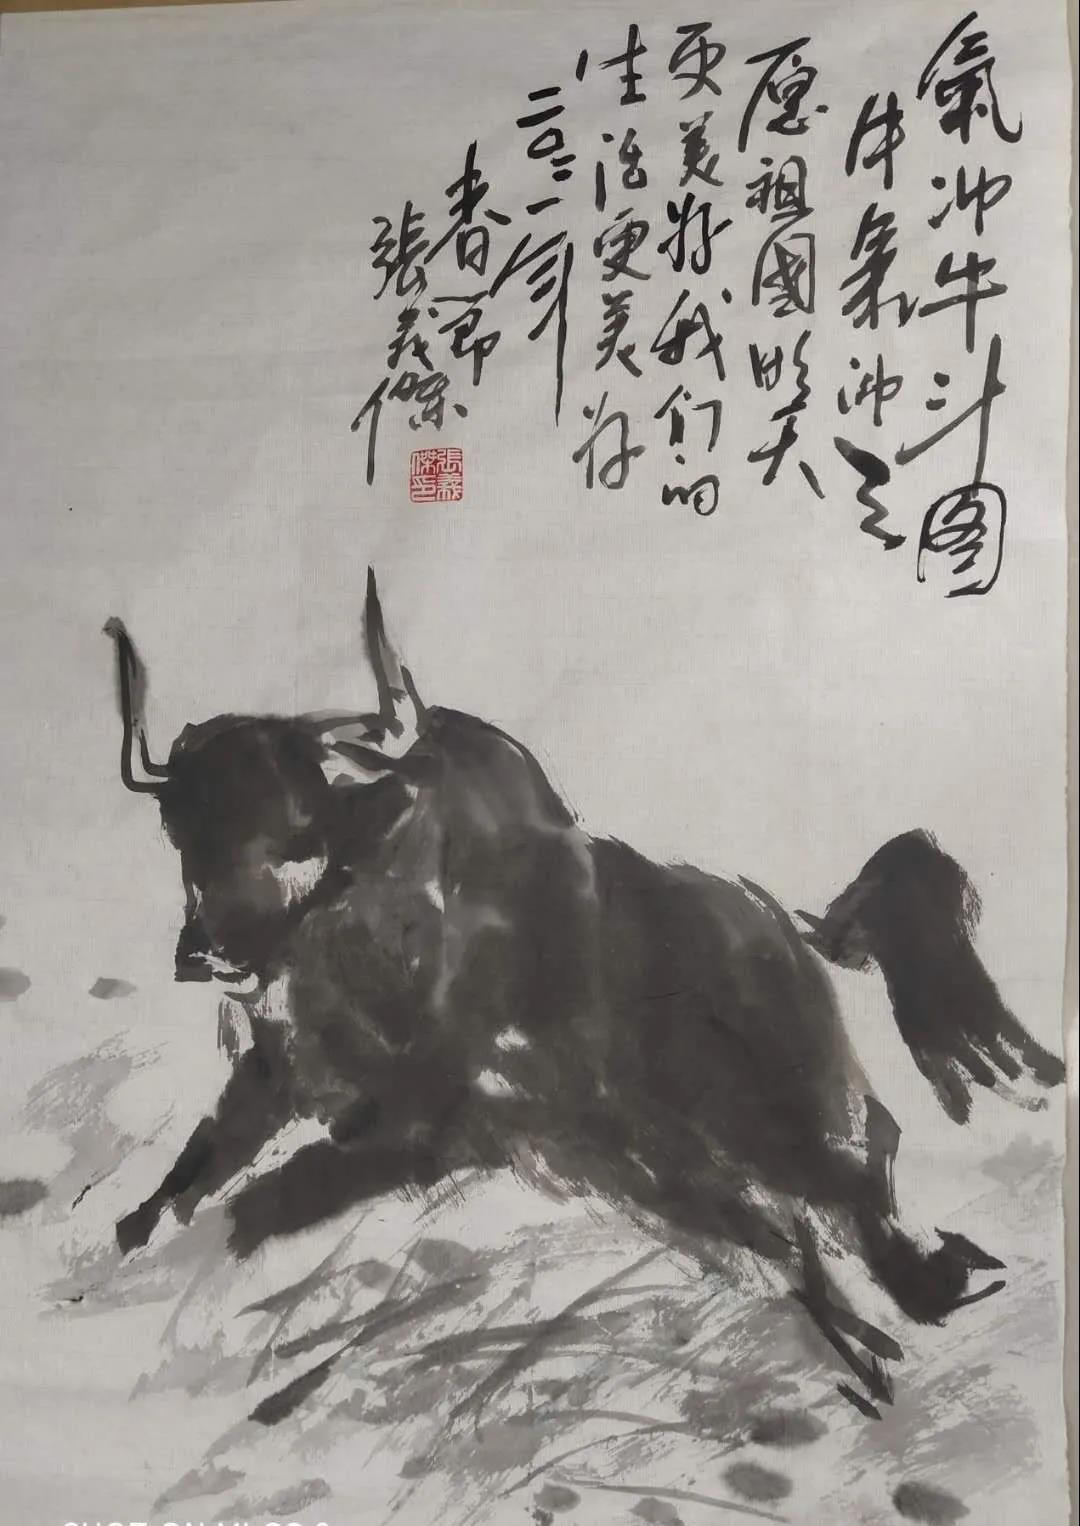 氣冲牛斗图
牛氣冲天
愿祖國明天
更美好我们的
生活更美好
二〇二一年
春節
張義傑
張義傑印